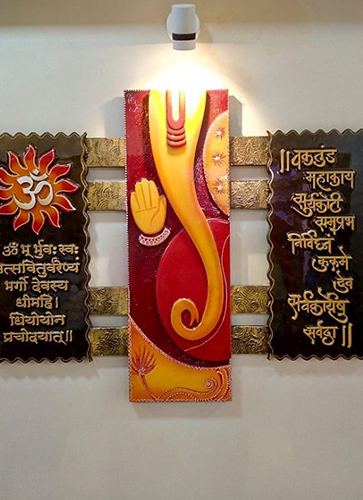 ॐ
ॐ भू र्भुवः स्वः
त्सवितुर्वरेण्यं
भर्गो देवस्य
धीमहि।
धियोयोन
प्रचोदयात्॥
॥वक्रतुंड
महाकाय
सूर्यकोटी
समप्रभ
निर्विघ्नं
कुरूमे
देव
सर्वकार्येषु
सर्वदा॥